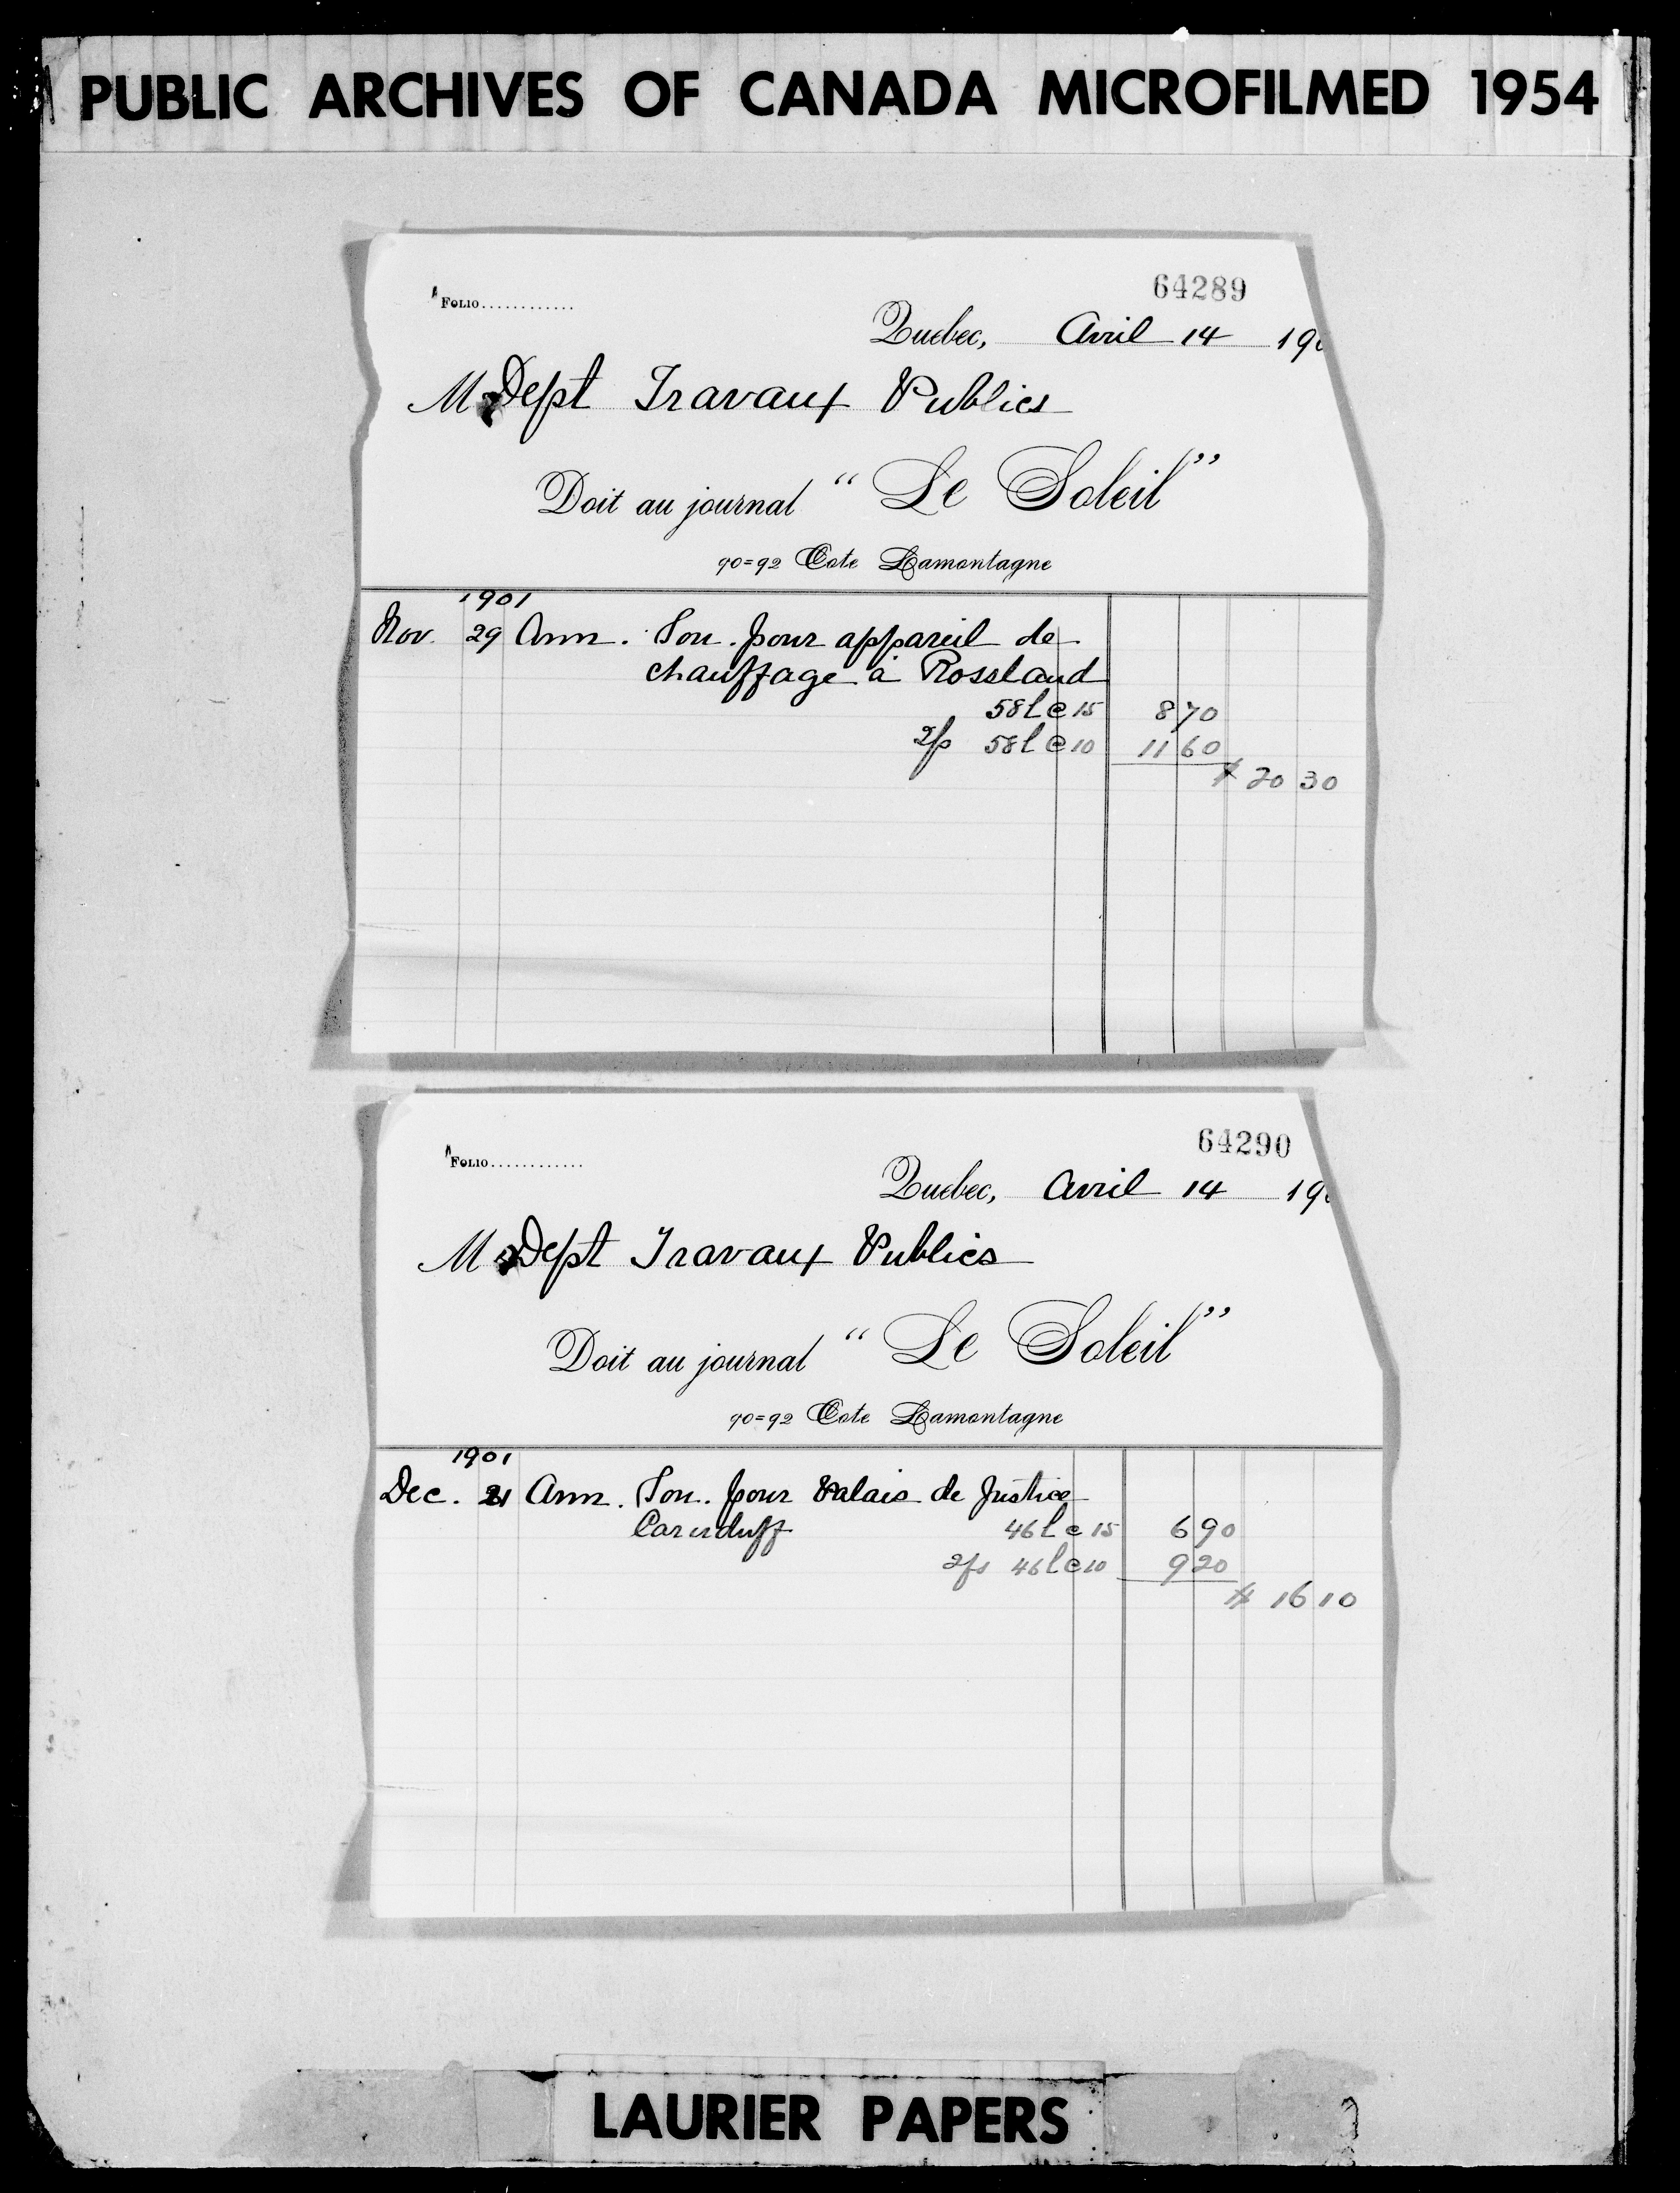 PUBLIC ARCHIVES OF CANADA MICROFILMED 1954
64289
FOLIO............
Quebec, Avril 14 190
M Dept Travaux Publics
Doit au journal “Le Soleil”
90=92 Cote Lamontagne
1901
Nov. 29 Ann. Sou. pour appareil de
chauffage à Rossland
58 l @ 15 8 70
2fs 58 l @ 10 11 60
$ 20 30
64290
FOLIO............
Quebec, Avril 14 190
M Dept Travaux Publics
Doit au journal “Le Soleil”
90=92 Cote Lamontagne
1901
Dec. 21 Ann. Sou. pour Palais de Justice
46 l @ 15 6 90
2fs 46 l @ 10 9 20
$ 16 10
LAURIER PAPERS